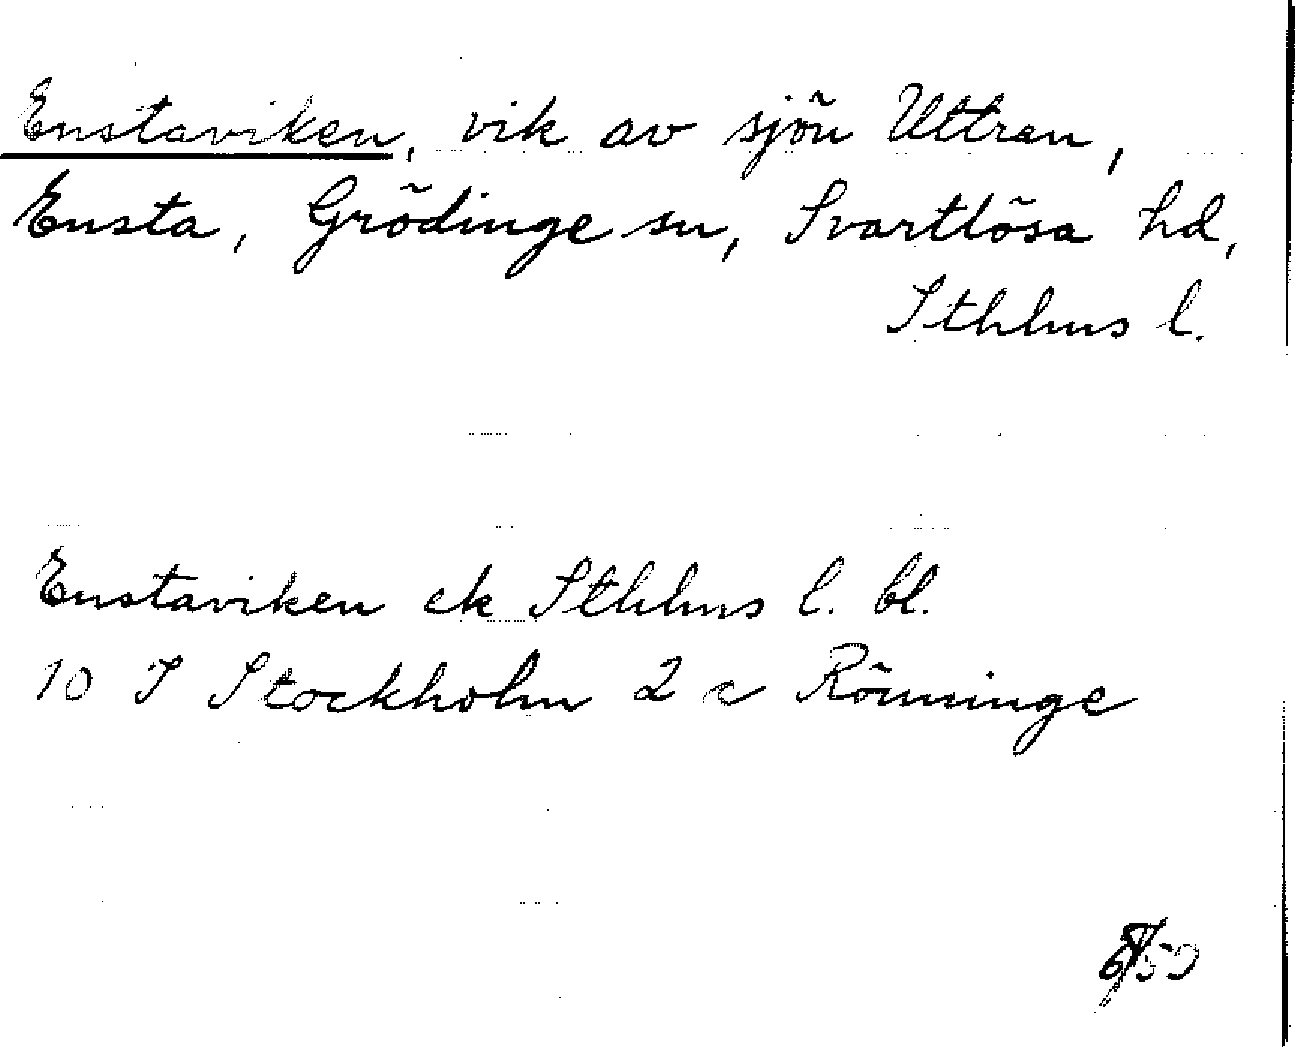 Enstaviken, vik av sjön Uttran,
Ensta, Grödinge sn, Svartlösa hd,
Sthlms l.
Enstaviken ek Sthlms l. bl.
10 I Stockholm 2 c Rönninge